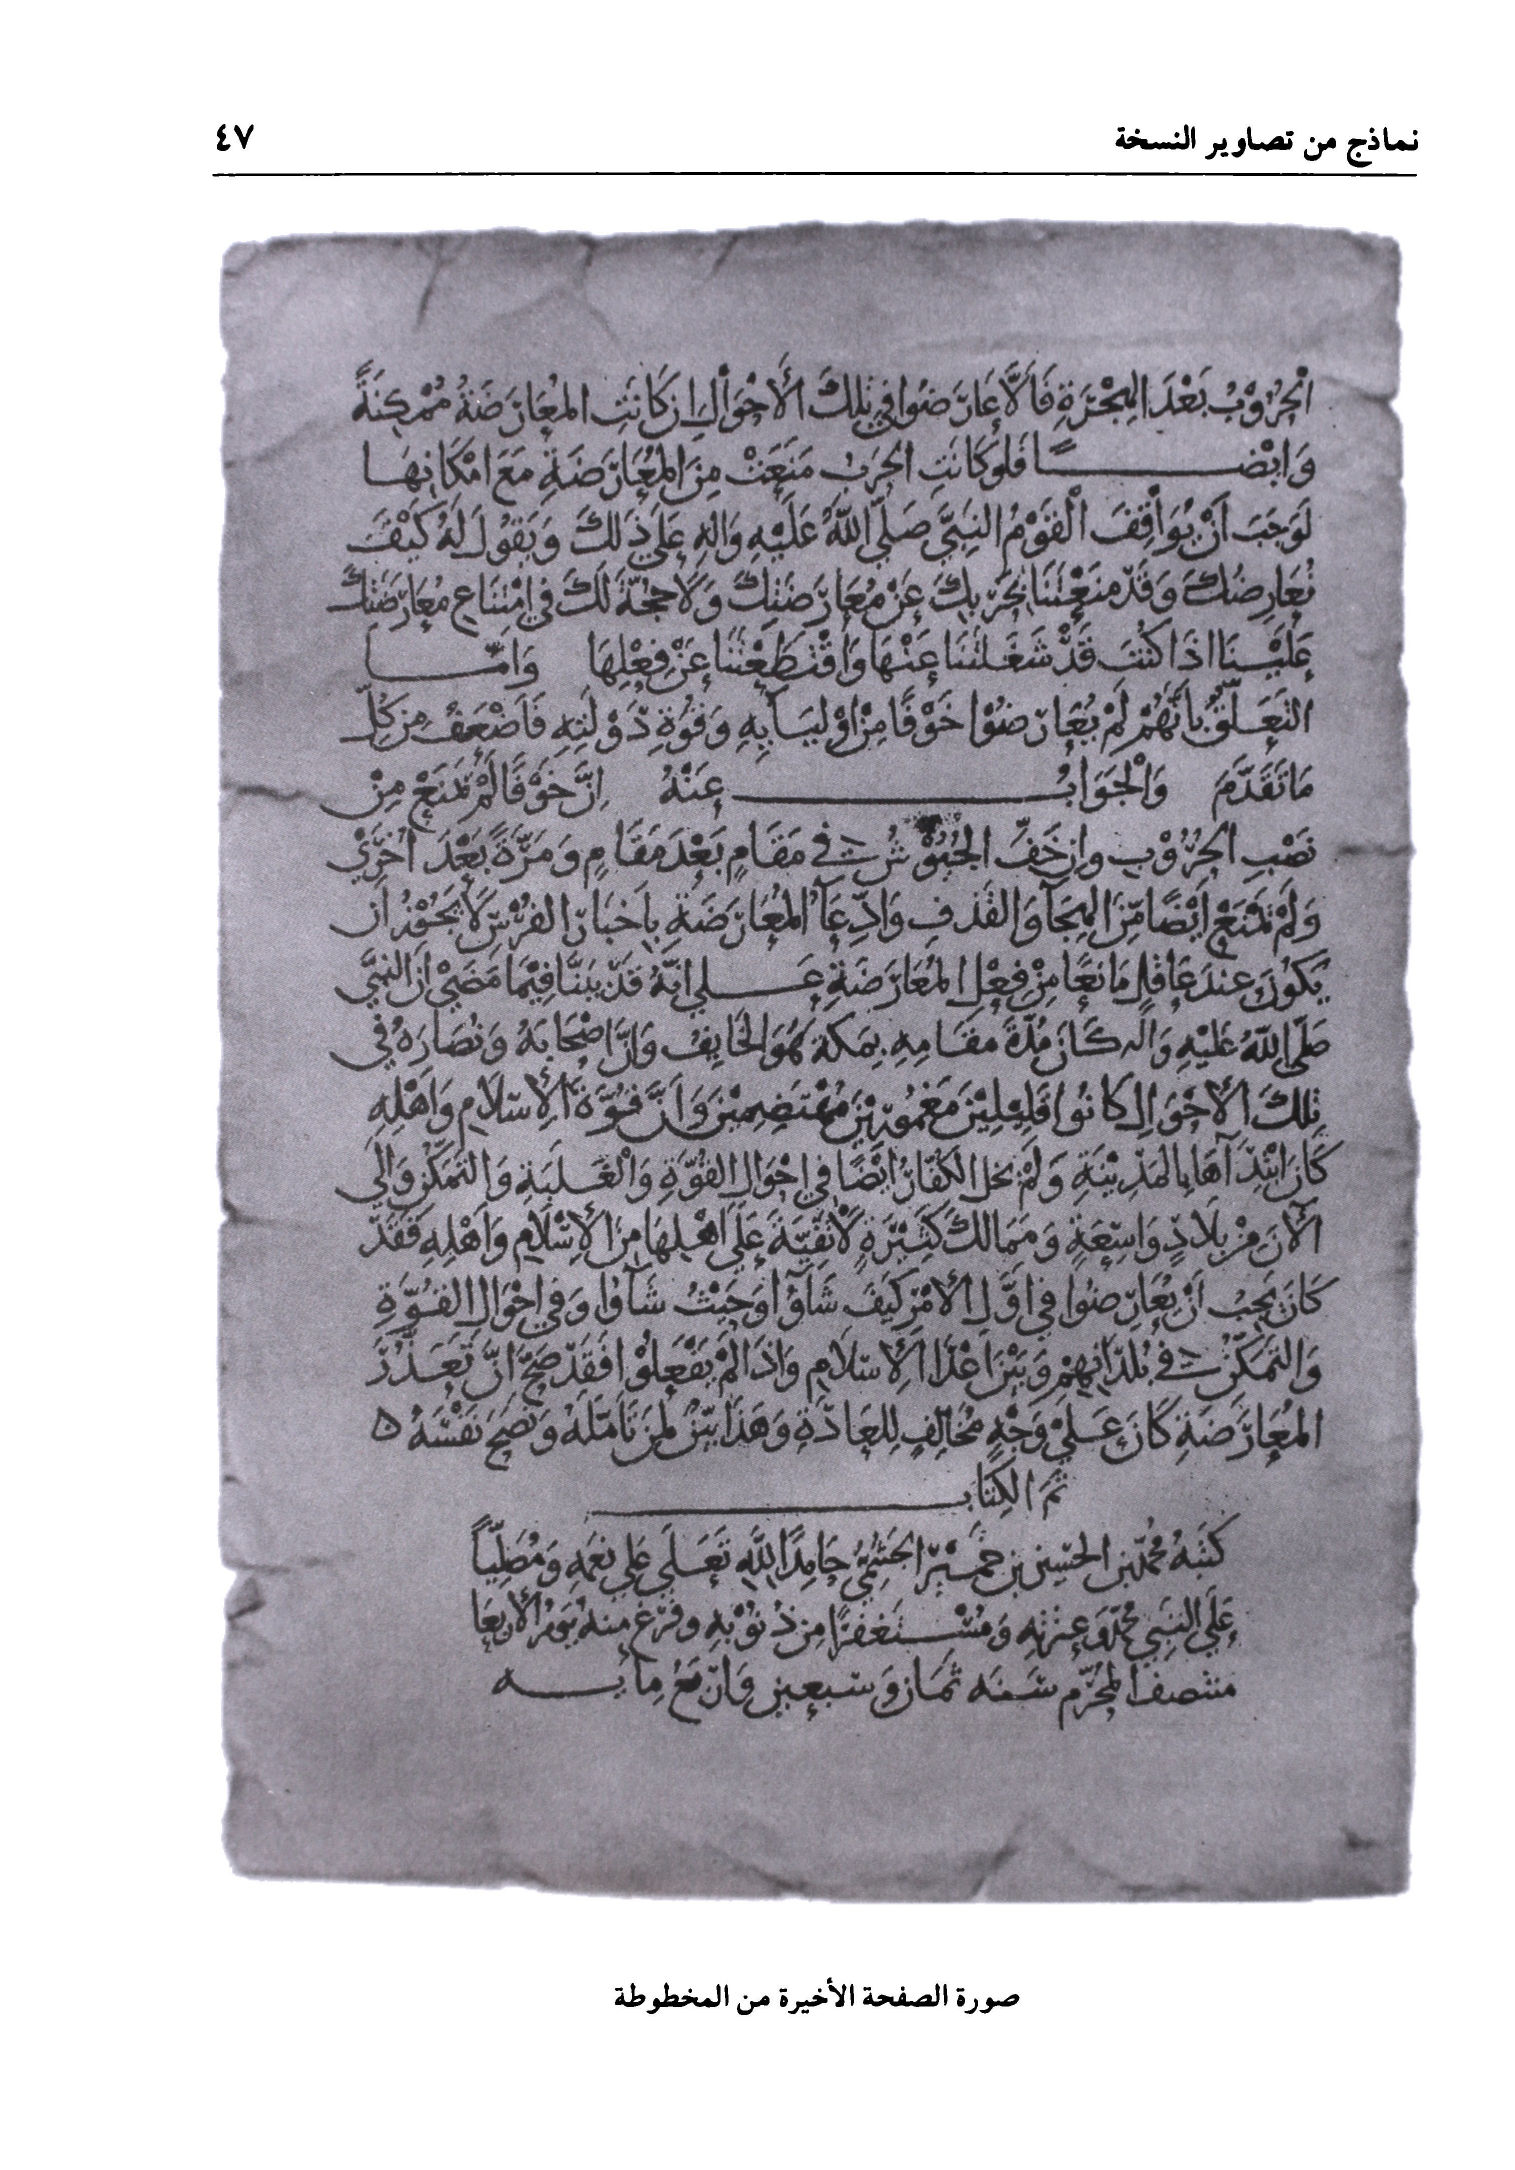 نماذج من تصاوير النسخة ٤٧
الحُرُوْبُ بَعْدَ الهِجْرَةِ فَألَّا عَارَضُوا في تِلكَ الأَحْوَالِ ان كَانَتِ المُعَارَضَةُ مُمْكِنَةً
وَايْضــــاً فَلَو كَانَتِ الحَربُ مَنَعَتْ مِنَ المُعَارَضَةِ مَعَ امْكَانِهَــا
لَوَجَبَ أنْ يُوَاقِفَ القَوْمُ النَبِيَّ صَلّي اللّٰهُ عَلَيْهِ وَالهِ عَلَي ذَلكَ وَيَقُولَ لَهُ كَيْفَ
نُعَارِضُكَ وَقَدْ مَنَعْتَنَا بحَرْبِكَ عَنْ مُعَارَضَتِكَ وَلَا حُجَّةَ لَكَ في امْتِنَاعِ مُعَارَضَتِكَ
عَلَيْـنَا اذَا كُنْتَ قَدْ شَغَـلْتَنَا عَنْهَا وَاقْتَطَعْتَنَا عَنْ فِعْلِهَا وَامّـــا
التَعَـلّقُ بأنَّهُمْ لَمْ يُعَارِضُوا خَوْفًا مِنْ اوْليَـآيِهِ وَقُوَّةِ دَوْلَتِهِ فَاَضْعَفُ مِن كُلِّ
مَا تَقَدَّمَ وَالْجَوَابُ ــــــ عَنْهُ اِنَّ خَوْفًا لَمْ يَمْنَعْ مِنْ
نَصْبِ الحُرُوْبِ وان خَفَّ الجُيُوْشُ في مَقَامٍ بَعْدَ مَقَامٍ وَمَرَّةً بَعْدَ اُخرَي
وَلَمْ يَمْنَعْ أيْضًا مِنَ الهِجَآ وَالقَذفِ وَادِّعَآءُ المُعَارَضَةِ بِاَخبَارِ الفُرْسِ لَا يَجُوزُ ان
يَكُوْنَ عِندَ عَاقِلٍ مَانِعًا مِنْ فِعْلِ المُعَارَضَةِ عَـــلي انَّهُ قَدْ بيّنَّا فِيْمَا مَضَي اَنَّ النَبيَّ
صَلّى اللّٰهُ عَليْهِ وَاله كَانَ مُدّةَ مقَامِهِ بِمَكة هُوَ الخَايِفُ وَانَّ اَصْحَابَهُ وَنُصّارَهُ في
تِلكَ الأحْوَالِ كَانُوا قَلِيْلِيْنَ مَغْمُورِيْنَ مُهْتَضِمِيْنَ وَانَّ قُـوَّةَ الإسْلَامِ وَاَهْلِهِ
كَانَ ابْتِدَآهَا بالمَدِيْنَةِ وَلَمْ يخل الكفّارُ ايْضًا في احْوَالِ القُوَّةِ وَالْغَـلَبَةِ وَالتَمَكُّنِ وَالَي
الآنَ مِنْ بلَادٍ وَاسِعَةٍ وَمَمَالكَ كَثِيْرَةٍ لا تَقِيَّـةَ عَلَي اهْـلِهَا مِنَ الإسْلَامِ وَاَهْلِهِ فَقَدْ
كَانَ يَجِبُ اَنْ يُعَارِضُوا في اوَّلِ الامْرِ كَيفَ شَآوُا وَحَيْثُ شَآوُا وَفي احْوَالِ القُـوَّةِ
وَالتَمَكُّنِ في بُلْدَانِهِمْ وَبَيْنَ اعْدَآ الإسْلَامِ وَاذَا لَمْ يَفْعَلُوْا فَقَدْ صَحَّ اَنَّ تَعَـذُّرَ
المُعَارَضَةِ كَانَ عَـلَي وَجْهٍ مُخَالِفٍ لِلعَادَةِ وَهَذَا بيّنٌ لِمَنْ تَامّلَهُ وَنَصَحَ نَفْسَهُ ۵
تَمّ الكِتَابــــ
كتبَهُ مُحمّدُ بن الحُسَيْنِ بن حمْيَر الجَشَمِيّ حَامِدًا لِلّٰهِ تَعَـلَي عَلَي نِعَمِهِ وَمُصَلّيًا
عَلَي النَبِيّ مُحمّدٍ وَعِتْرَتِهِ وَمُسْـتَغفِرًا مِن ذُنُوْبِهِ وفَرَغَ منه يَوْمَ الأربعَا
منتَصِفَ المُحَرّمِ سَـنَه ثَمَان وَسَبعِين وَارْبَعِ مِايـه
صورة الصفحة الأخيرة من المخطوطة